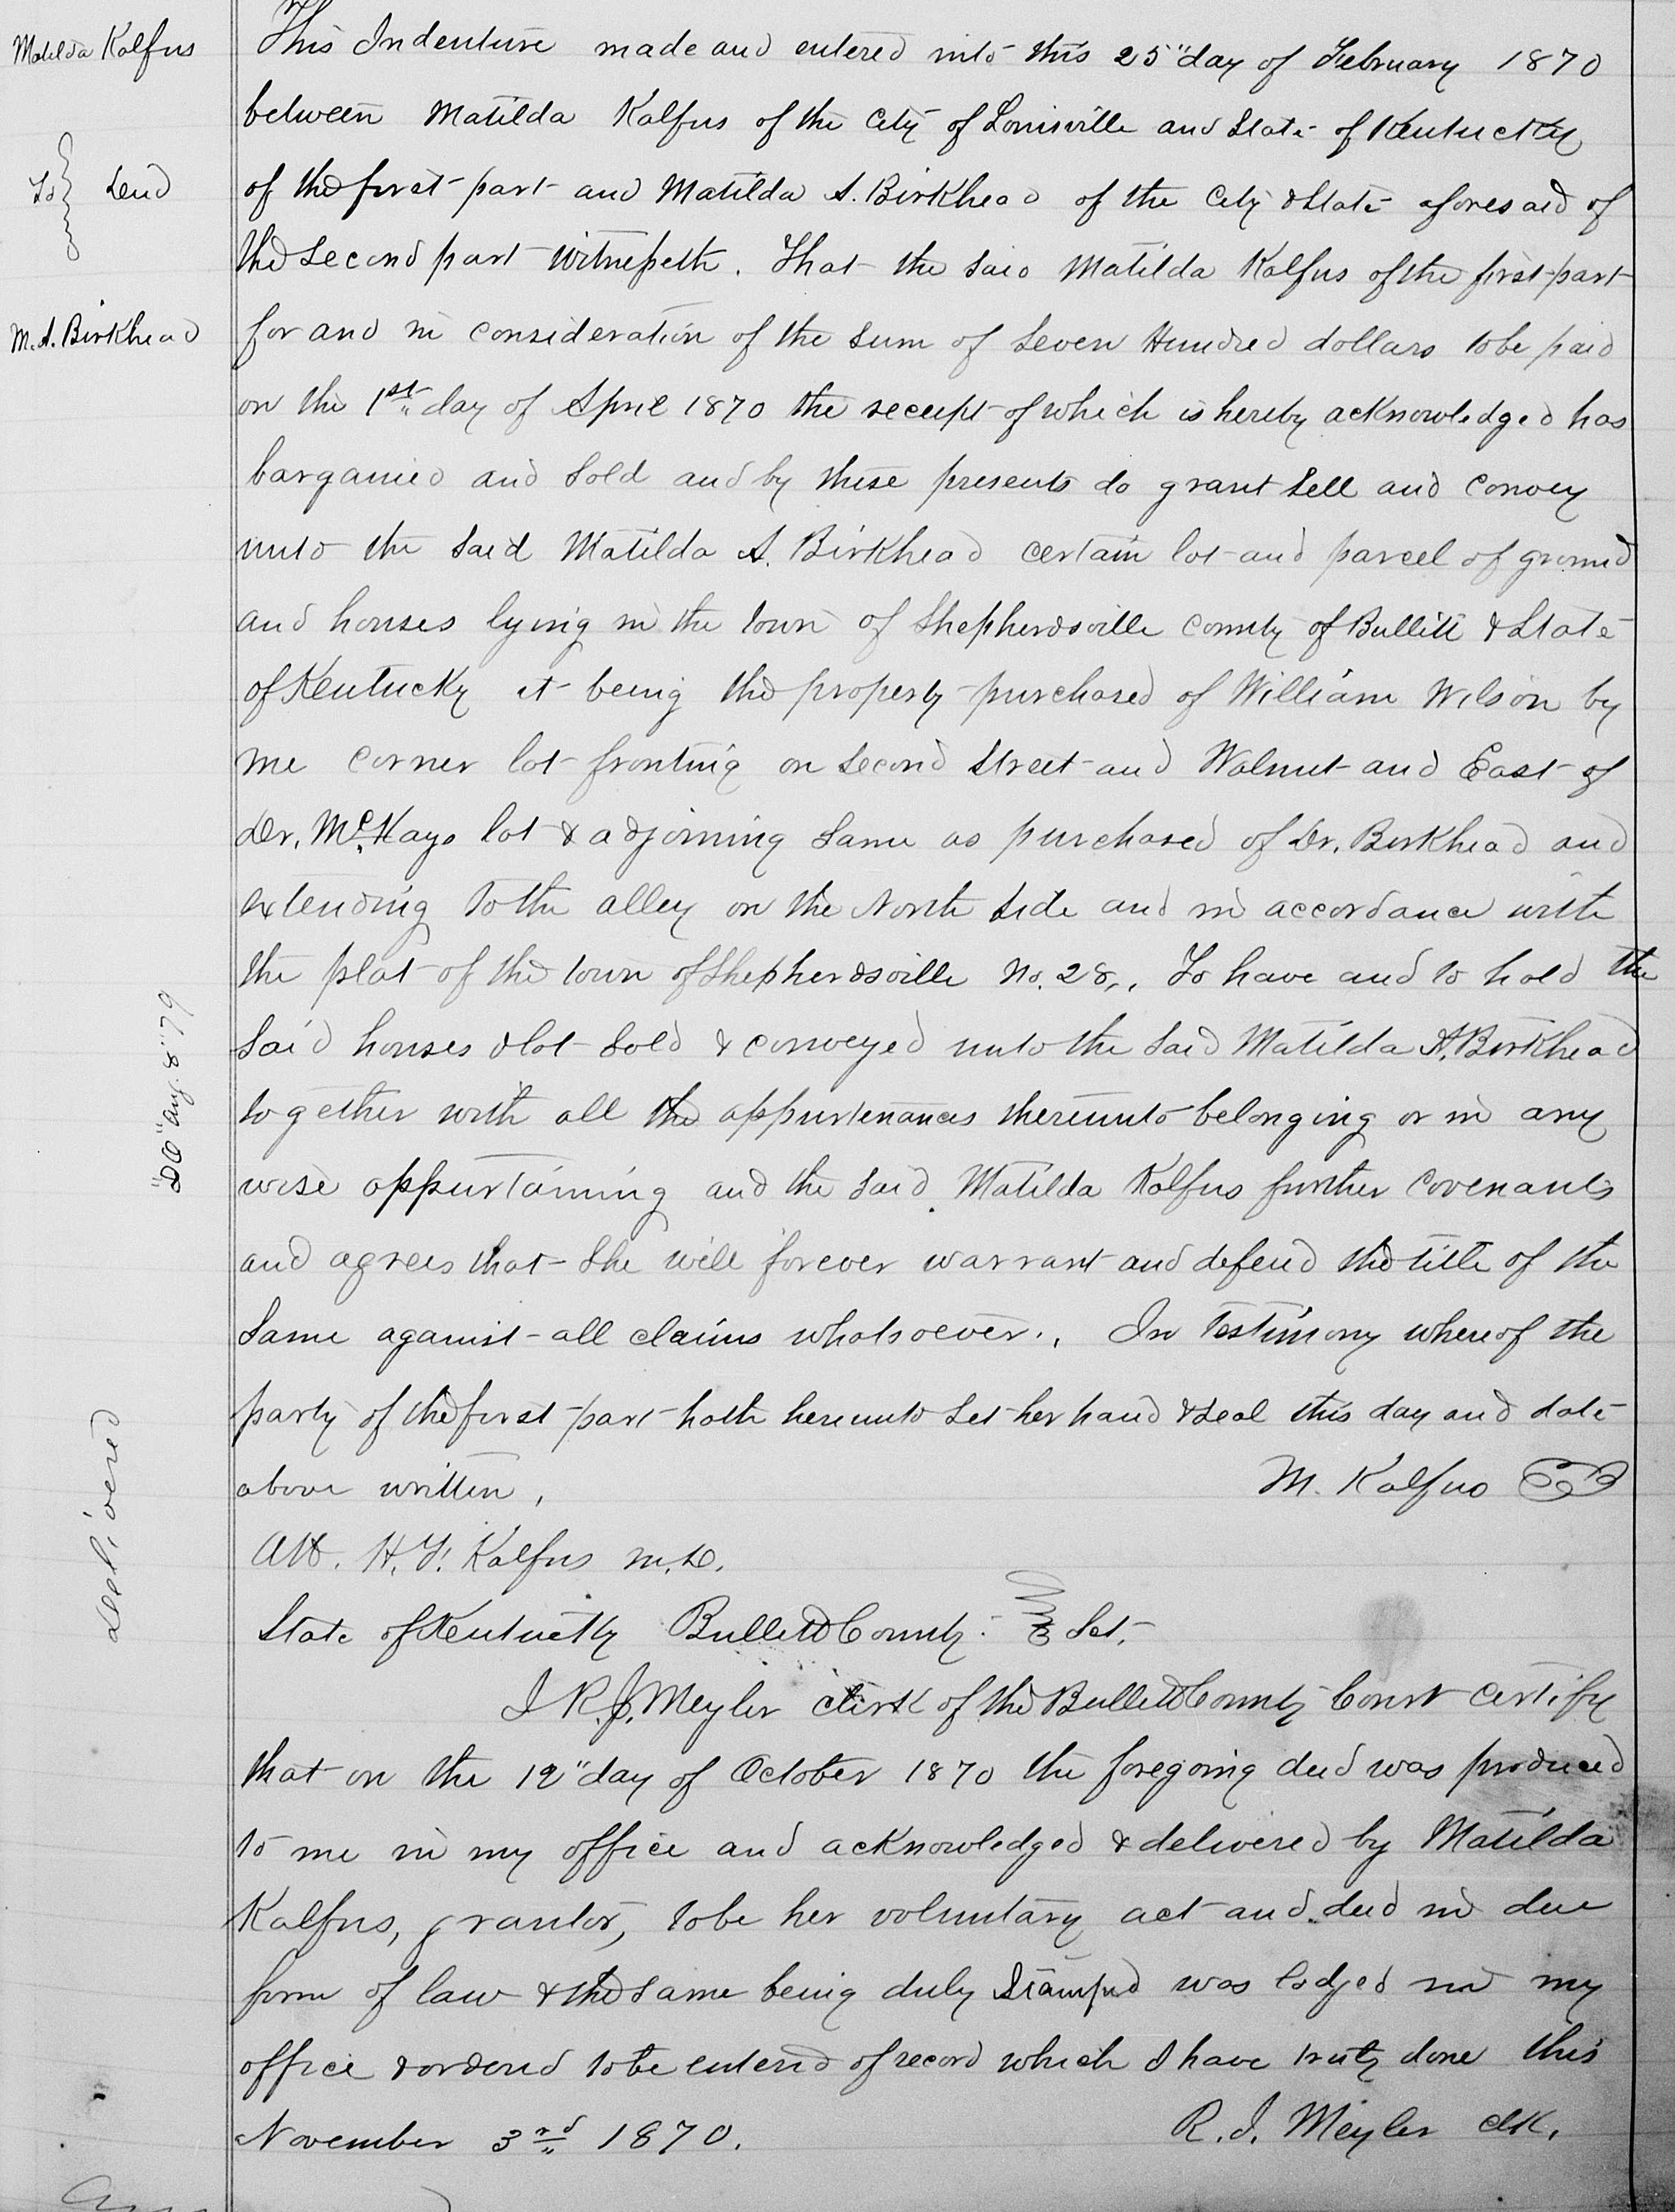 Matilda Kalfus
To } Deed
M. A. Birkhead
This Indenture made and entered into this 25" day of February 1870
between Matilda Kalfus of the City of Louisville and State of Kentucky
of the first part and Matilda A. Birkhead of the City & State aforesaid of
the second part witnesseth. That the said Matilda Kalfus of the first part
for and in consideration of the sum of Seven Hundred dollars to be paid
on the 1st day of April 1870 the receipt of which is hereby acknowledged has
bargained and sold and by these presents do grant sell and convey
unto the said Matilda A. Birkhead certain lot and parcel of ground
and houses lying in the town of Shepherdsville county of Bullitt & State
of Kentucky it being the property purchased of William Wilson by
me corner lot fronting on Second Street and Walnut and East of
Dr. McKays lot & adjoining same as purchased of Dr. Birkhead and
extending to the alley on the North side and in accordance with
the plat of the town of Shepherdsville No. 28,. To have and to hold the
said houses & lot sold & conveyed unto the said Matilda A. Birkhead
together with all the appurtenances thereunto belonging or in any
wise appurtaining and the said Matilda Kalfus further covenants
and agrees that she will forever warrant and defend the title of the
same against all claims whatsoever., In testimony whereof the
party of the first part hath hereunto set her hand & seal this day and date
above written, M. Kalfus
Att. H. F. Kalfus M.D.
State of Kentucky Bullitt County. } Sct.
I R. J. Meyler clerk of the Bullitt County Court certify
that on the 12" day of October 1870 the foregoing deed was produced
to me in my office and acknowledged & delivered by Matilda
Kalfus, grantor, to be her voluntary act and deed in due
form of law & the same being duly Stamped was lodged in my
office & orderd to be enterd of record which I have truly done this
November 3rd 1870. R. J. Meyler clk.
delivered
Aug. 8" 79